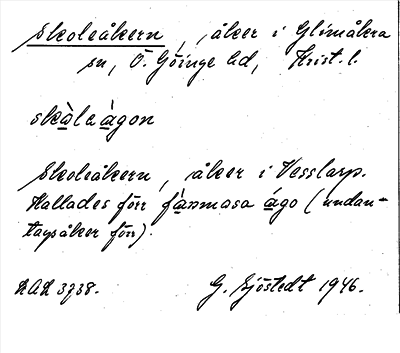 Skoleåkern, åker i Glimåkra
sn, Ö. Göinge hd, Krist. l.
skàlaágon
Skoleåkern, åker i Vesslarp.
Kallades förr fànmasa ágo (undan-
tagsåker förr).
LAL 3938.
G. Sjöstedt 1946.